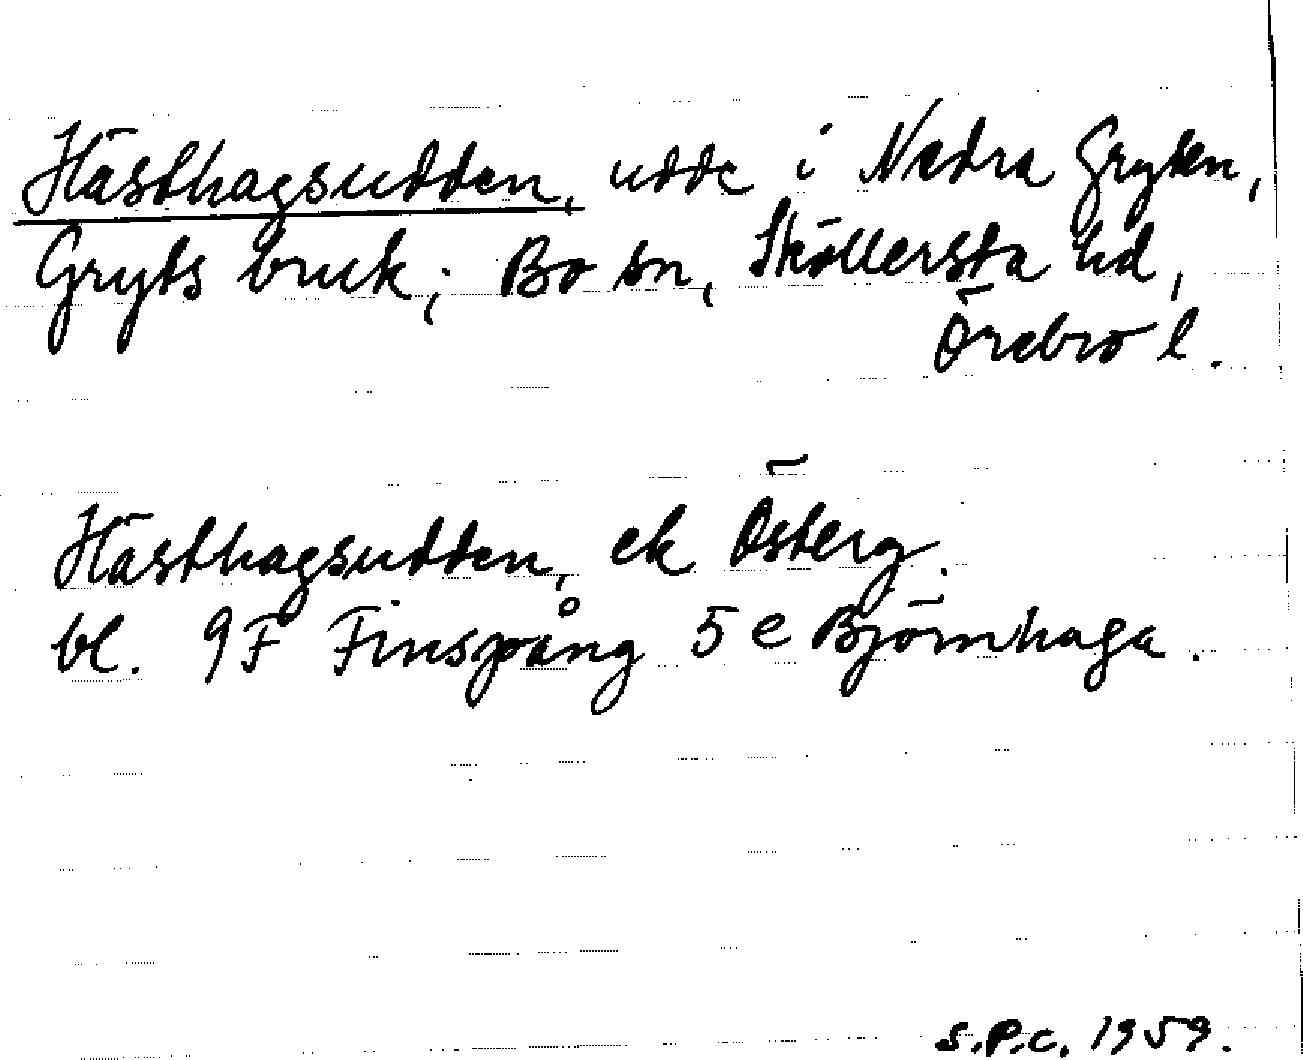 Hästhagsudden, udde i Nedra Gryten,
Gryts bruk; Bo sn, Sköllersta hd,
Örebro l.
Hästhagsudden, ek Österg.
bl. 9F Finspång 5e Björnhaga.
S.P.C. 1959.